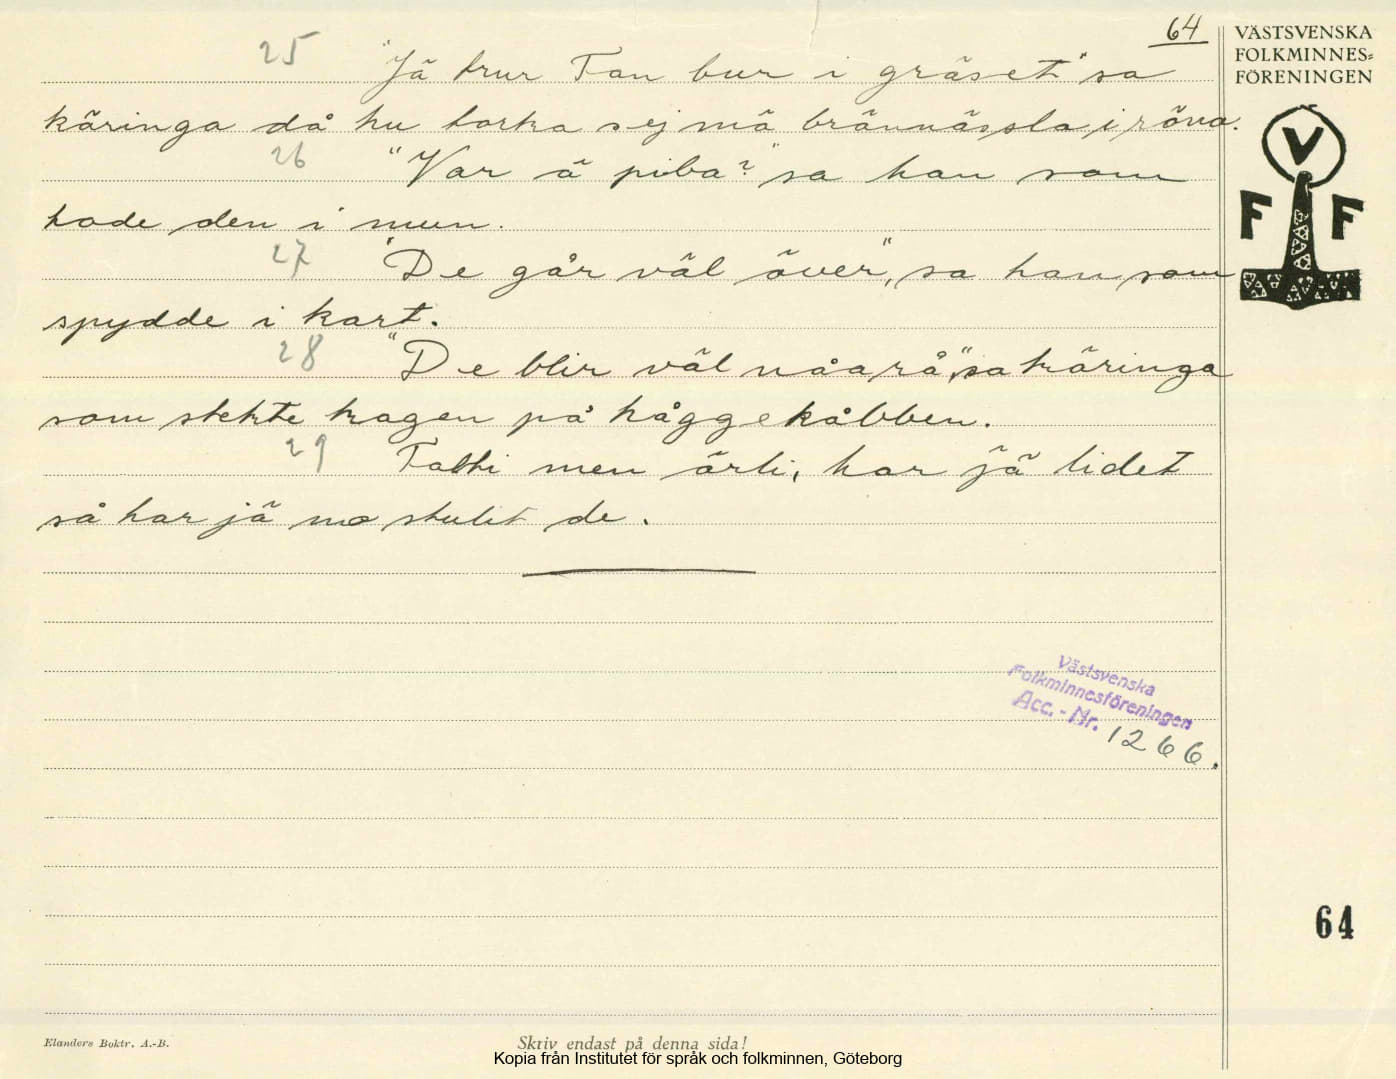 64
VÄSTSVENSKA
FOLKMINNES=
FÖRENINGEN
V
F F
25 "Jä trur Fan bur i gräset" sa
käringa då hu torka sej mä brännässla i röva.
26 "Var ä piba?" sa han som
hade den i mun.
27 "De går väl över", sa han som
spydde i kart.
28 "De blir väl nåa rå", sa käringa
som stekte kragen på håggekåbben.
29 Fatti men ärli, har jä lidet
så har jä mö stulit de.
Västsvenska
Folkminnesföreningen
Acc. - Nr. 1266.
64
Elanders Boktr. A.-B.
Skriv endast på denna sida!
Kopia från Institutet för språk och folkminnen, Göteborg